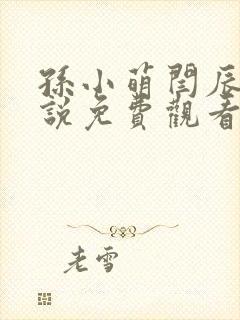 孫小萌閆辰
說免費觀看
老雪